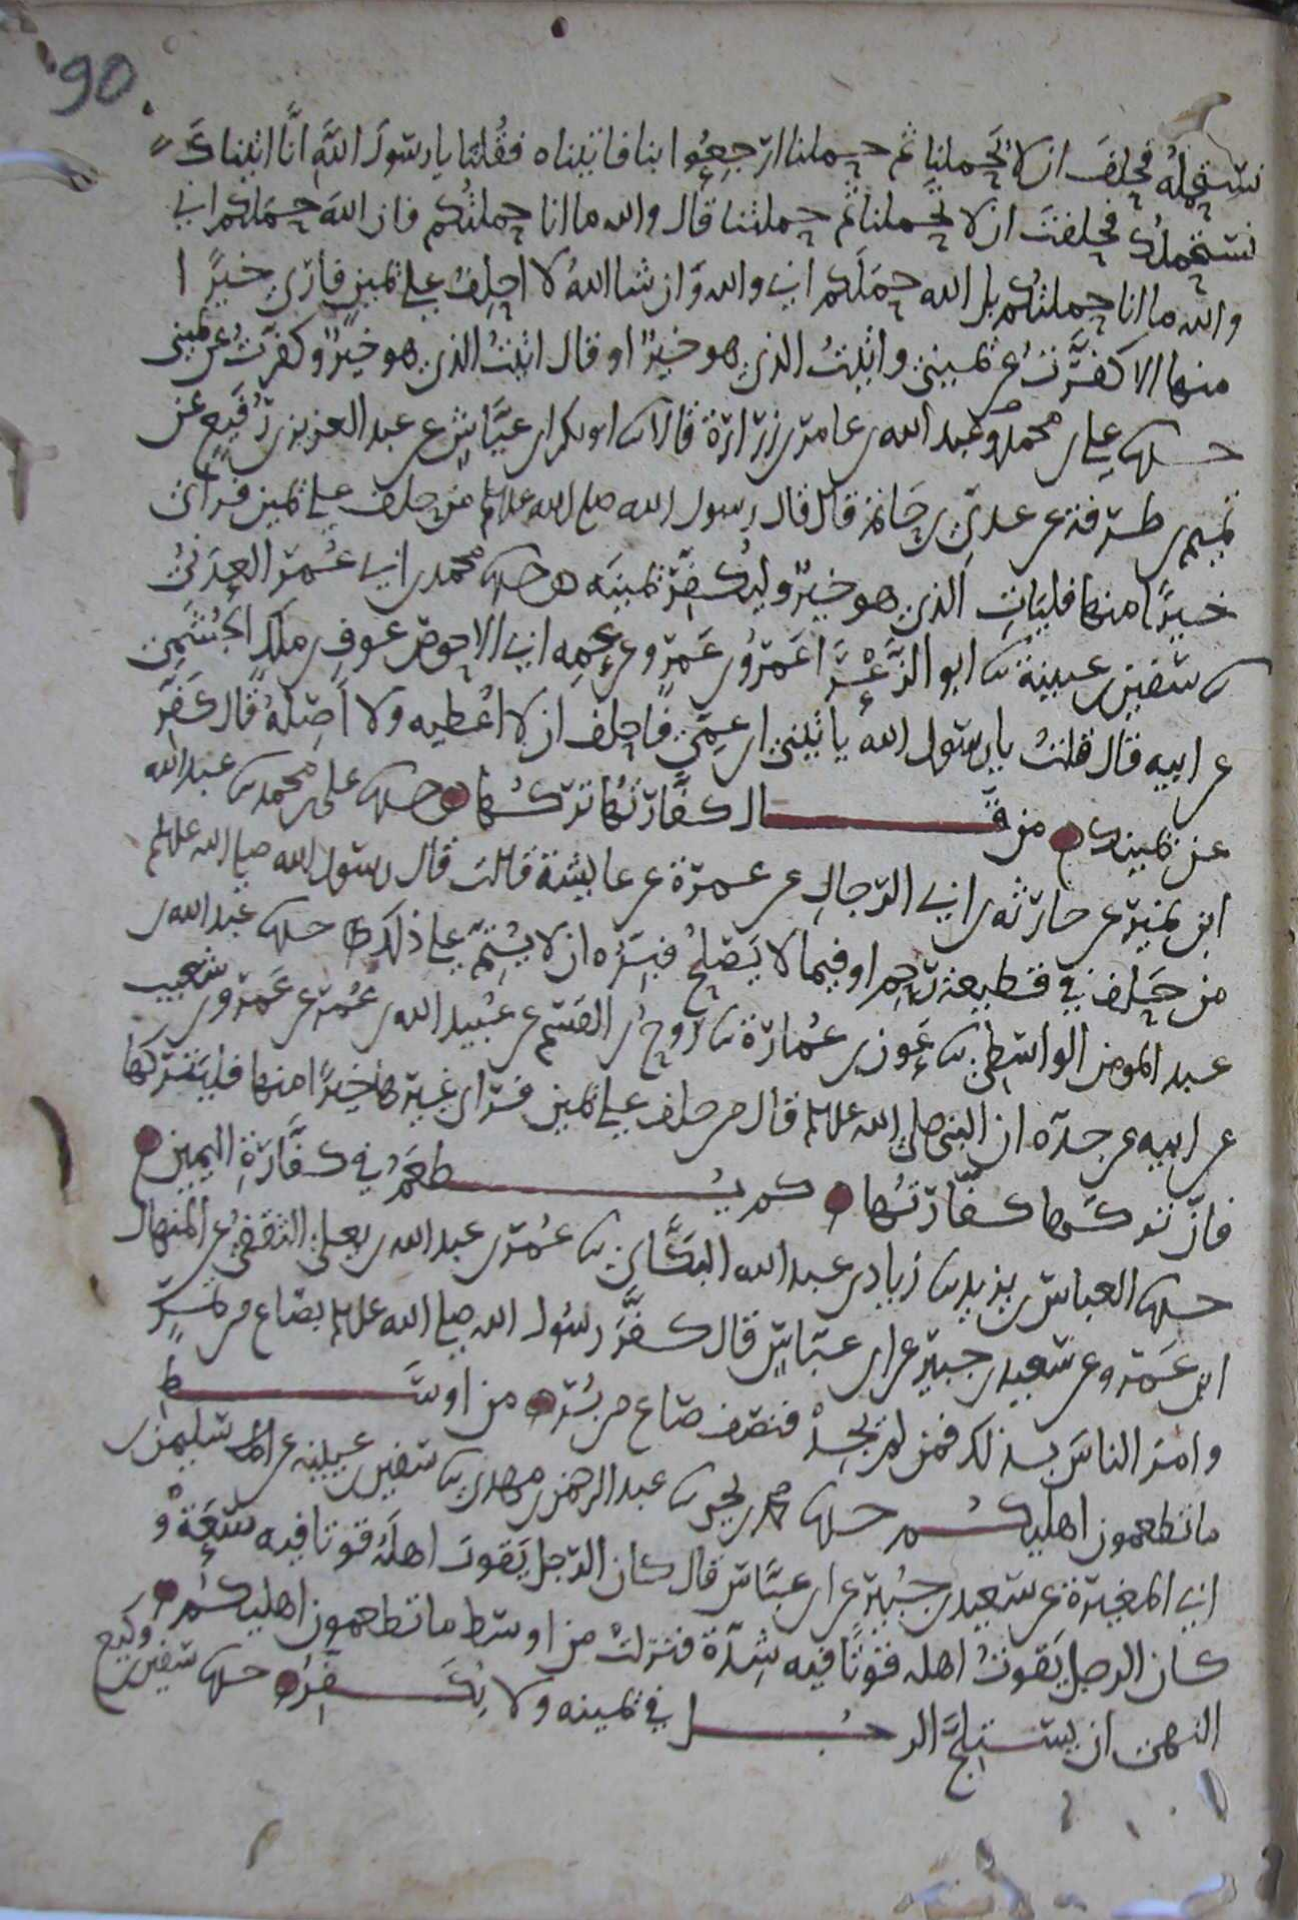 90
نستحمله فحلف ان لا يحملنا ثم حملنا ارجعوا بنا فاتيناه فقلنا يا رسول الله انا اتيناك
نستحملك فحلفت ان لا تحملنا ثم حملتنا قال والله ما انا حملتكم فان الله حملكم اني
والله ما انا حملتكم بل الله حملكم اني والله وان شا الله لا احلف على يمين فارى خيرا
منها الا كفرت عن يميني واتيت الذي هو خير او قال اتيت الذي هو خير وكفرت عن يميني
حدثنا علي بن محمد وعبد الله بن عامر بن زرارة قالا ثنا ابو بكر بن عياش عن عبد العزيز بن رفيع عن
تميم بن طرفة عن عدي بن حاتم قال قال رسول الله صلى الله عليه وسلم من حلف على يمين فراى
خيرا منها فليات الذي هو خير وليكفر يمينه حدثنا محمد بن ابي عمر العدني
ثنا سفين بن عيينة ثنا ابو الزعرا عمرو بن عمرو عن عمه ابي الاحوص عوف بن ملك الجشمي
عن ابيه قال قلت يا رسول الله ياتيني ابن عمي فاحلف ان لا اعطيه ولا اصله قال كفر
عن يمينك من قال كفارتها تركها حدثنا علي بن محمد ثنا عبد الله
ابن نمير عن حارثه بن ابي الرجال عن عمرة عن عايشة قالت قال رسول الله صلى الله عليه وسلم
من حلف في قطيعة رحم او فيما لا يصلح فبره ان لا يتم على ذلك حدثنا عبد الله بن
عبد المومن الواسطي ثنا عون بن عمارة ثنا روح بن القسم عن عبيد الله بن عمر عن عمرو بن شعيب
عن ابيه عن جده ان النبي صلى الله عليه وسلم قال من حلف على يمين فراى غيرها خيرا منها فليتركها
فان تركها كفارتها كم يطعم في كفارة اليمين
حدثنا العباس بن يزيد ثنا زياد بن عبد الله البكاي ثنا عمر بن عبد الله بن يعلى الثقفي عن المنهال
ابن عمرو عن سعيد بن جبير عن ابن عباس قال كفر رسول الله صلى الله عليه وسلم بصاع من تمر
وامر الناس بذلك فمن لم يجد فنصف صاع من بر من اوسط
ما تطعمون اهليكم حدثنا محمد بن يحيى ثنا عبد الرحمن بن مهدي ثنا سفين بن عيينه عن سليمن بن
ابي المغيرة عن سعيد بن جبير عن ابن عباس قال كان الرجل يقوت اهله قوتا فيه سعة و
كان الرجل يقوت اهله قوتا فيه شدة فنزلت من اوسط ما تطعمون اهليكم
النهي ان يستلج الرجل في يمينه ولا يكفر حدثنا سفين بن وكيع